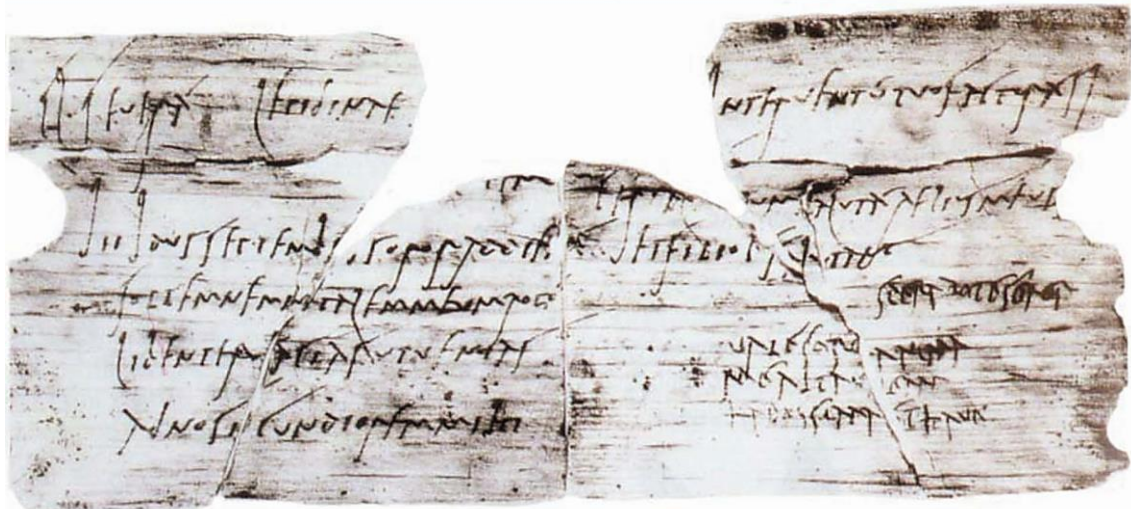 Cl Severá Lepidinae
iii Idus Septembr s soror ad diem
sollemnem natalem meum rogó
libenter faciás ut venias
ad nos iucundiorem mihi
interventú tuo facturá si
uum salutá Aelius meus
et filiolus salutant
sperabo te soror
vale soror anima
mea ita valeam
karissima et have